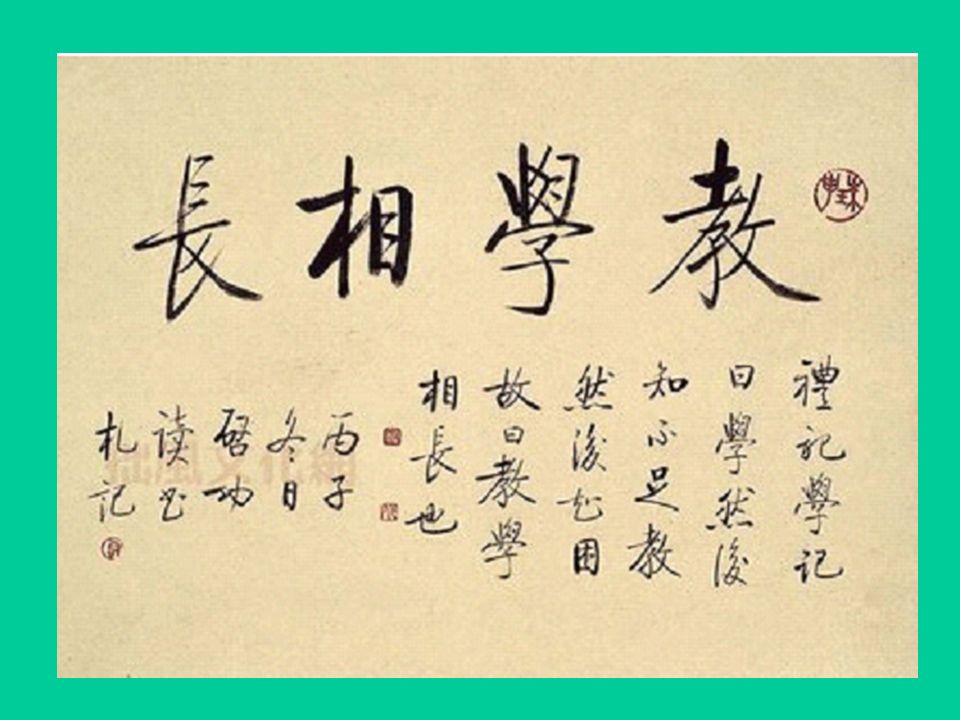 教學相長
禮記學記
曰學然後
知不足教
然後知困
故曰教學
相長也
丙子
冬日
啓功
读书
札记